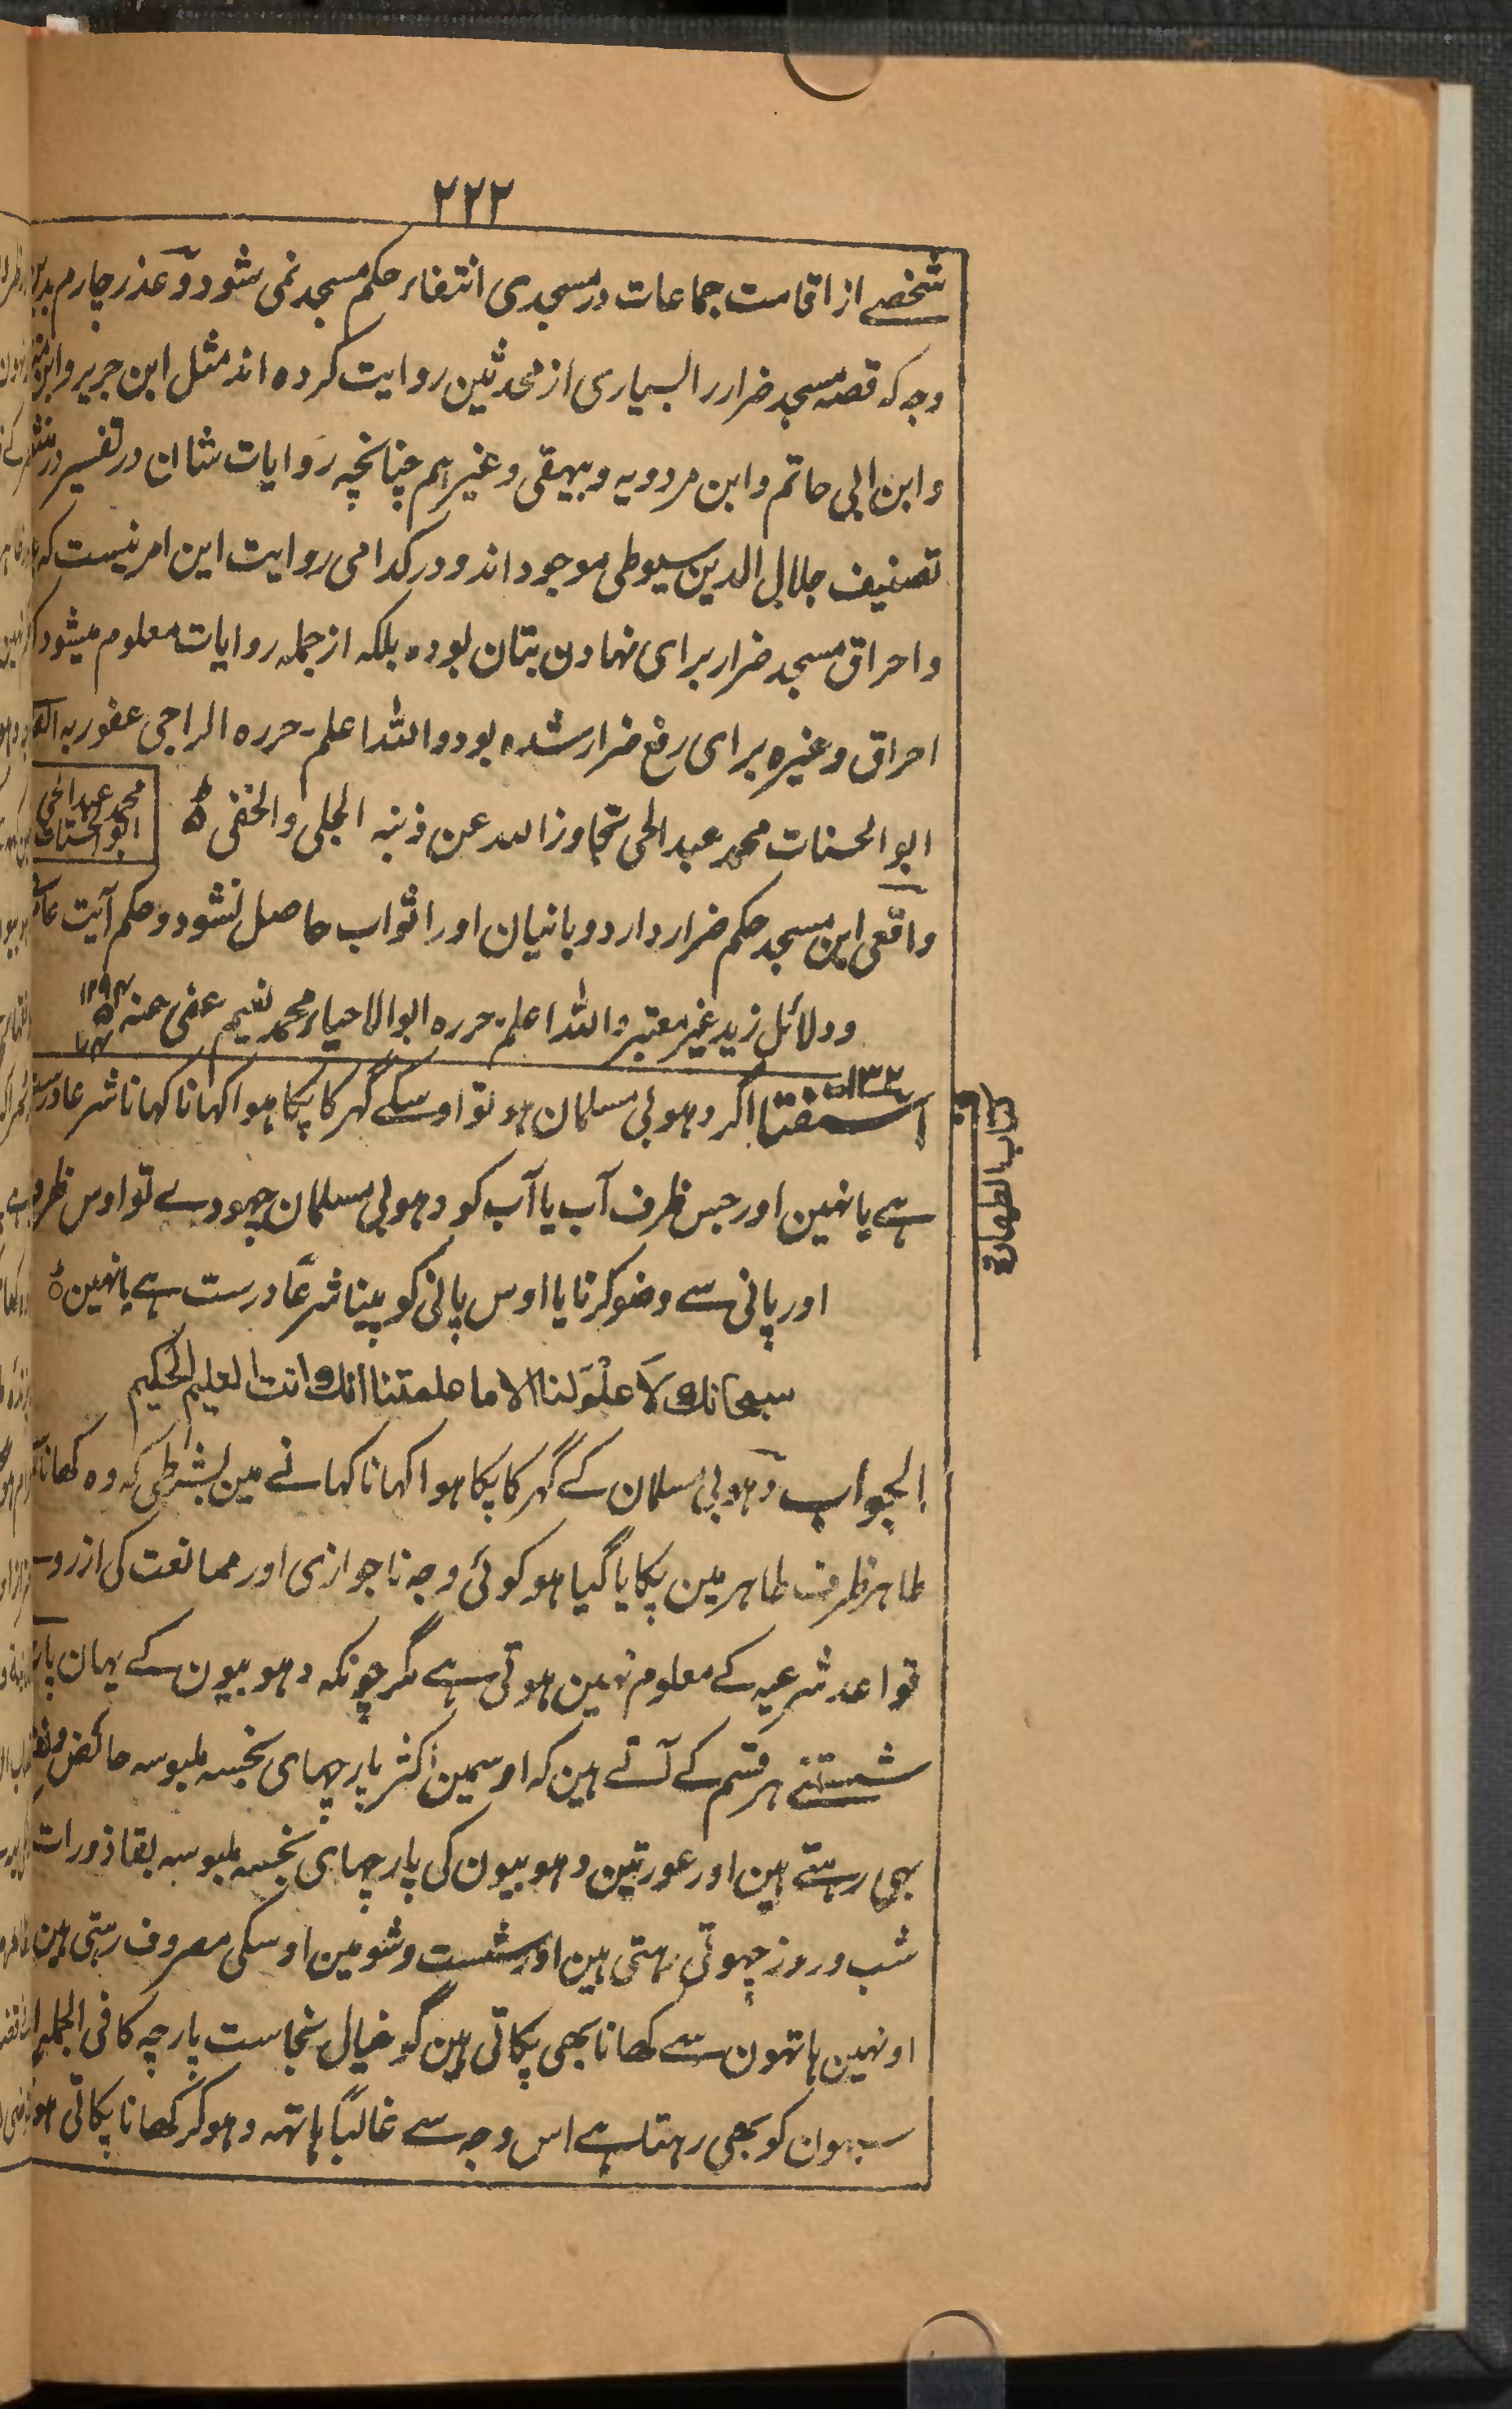 ۲۲۲
شخصے از اقامت جماعات در مسجدی انتفاء حکم مسجد نمی شود و عذر چارم
وجہ کہ قصہ مسجد ضرار را بسیاری از محدثین روایت کردہ اند مثل ابن جریر وابن
وابن ابی حاتم وابن مردویہ وبیہقی وغیرہم چنانچہ روایات شان در تفسیر در
تصنیف جلال الدین سیوطی موجود اند ودر کدامی روایت این امر نیست کہ
واحراق مسجد ضرار برای نہادن بتان بودہ بلکہ از جملہ روایات معلوم میشود
احراق وغیرہ برای رفع ضرار شدہ بود واللہ اعلم۔ حررہ الراجی عفو ربہ
ابو الحسنات محمد عبد الحی تجاوز اللہ عن ذنبہ الجلی والخفی
محمد عبد الحی ابو الحسنات
واقعی این مسجد حکم ضرار دارد و بانیان اورا ثواب حاصل نشود وحکم آیت
ودلائل زید غیر معتبر واللہ اعلم۔ حررہ ابو الاحیاء محمد نعیم عفی عنہ
استفتا ۱۳۲ اگر دہوبی مسلمان ہو تو اوسکے گہر کا پکا ہوا کہانا کہانا شرعا
کتاب الطہارۃ
ہے یا نہین اور جس ظرف آب یا آب کو دہوبی مسلمان چہودے تو اوس
اور پانی سے وضو کرنا یا اوس پانی کو پینا شرعًا درست ہے یا نہین
سبحانك لا علم لنا الا ما علمتنا انك انت العليم الحكيم
الجواب دہوبی مسلمان کے گہر کا پکا ہوا کہانا کہانے مین بشرطی کہ وہ کھانا
طاہر ظرف طاہر مین پکایا گیا ہو کوئی وجہ ناجوازی اور ممانعت کی ازروے
قواعد شرعیہ کے معلوم نہین ہوتی ہے مگر چونکہ دہوبیون کے یہان
شستنے ہر قسم کے آتے ہین کہ اوسمین اکثر پارچہای نجسہ ملبوسہ حائض
بہی رہتے ہین اور عورتین دہوبیون کی پارچہای نجسہ ملبوسہ بقاذورات
شب وروز چہوتی رہتی ہین اور شست وشو مین اوسکی مصروف رہتی ہین
اونہین ہاتہون سے کھانا بھی پکاتی ہین گو خیال نجاست پارچہ کا فی الجملہ
سبہون کو بھی رہتا ہے اس وجہ سے غالبًا ہاتہہ دہوکر کھانا پکاتی